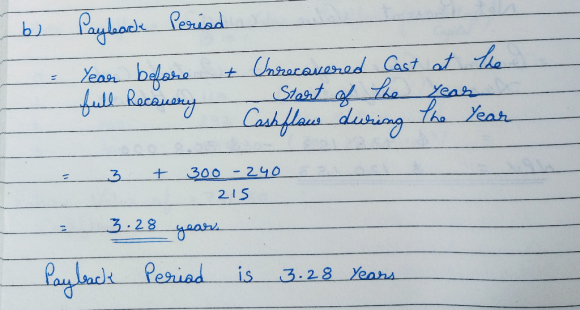 b) Payback Period
= Year before + Unrecovered Cost at the
full Recovery Start of the year
Cashflow during the Year
= 3 + 300 - 240
215
= 3.28 years.
Payback Period is 3.28 Years